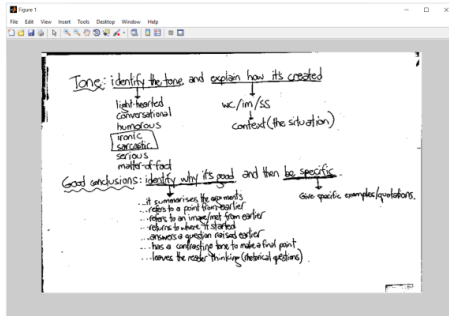 Figure 1
File Edit View Insert Tools Desktop Window Help
Tone: identify the tone and explain how its created
light-hearted
conversational
humorous
ironic
sarcastic
serious
matter-of-fact
wc/im/ss
context (the situation)
Good conclusions: identify why it's good and then be specific.
...it summarises the arguments
...refers to a point from earlier
...refers to an image/met from earlier
...returns to where it started
...answers a question raised earlier
...has a contrasting tone to make a final point
...leaves the reader thinking (rhetorical questions)
Give specific examples/quotations.